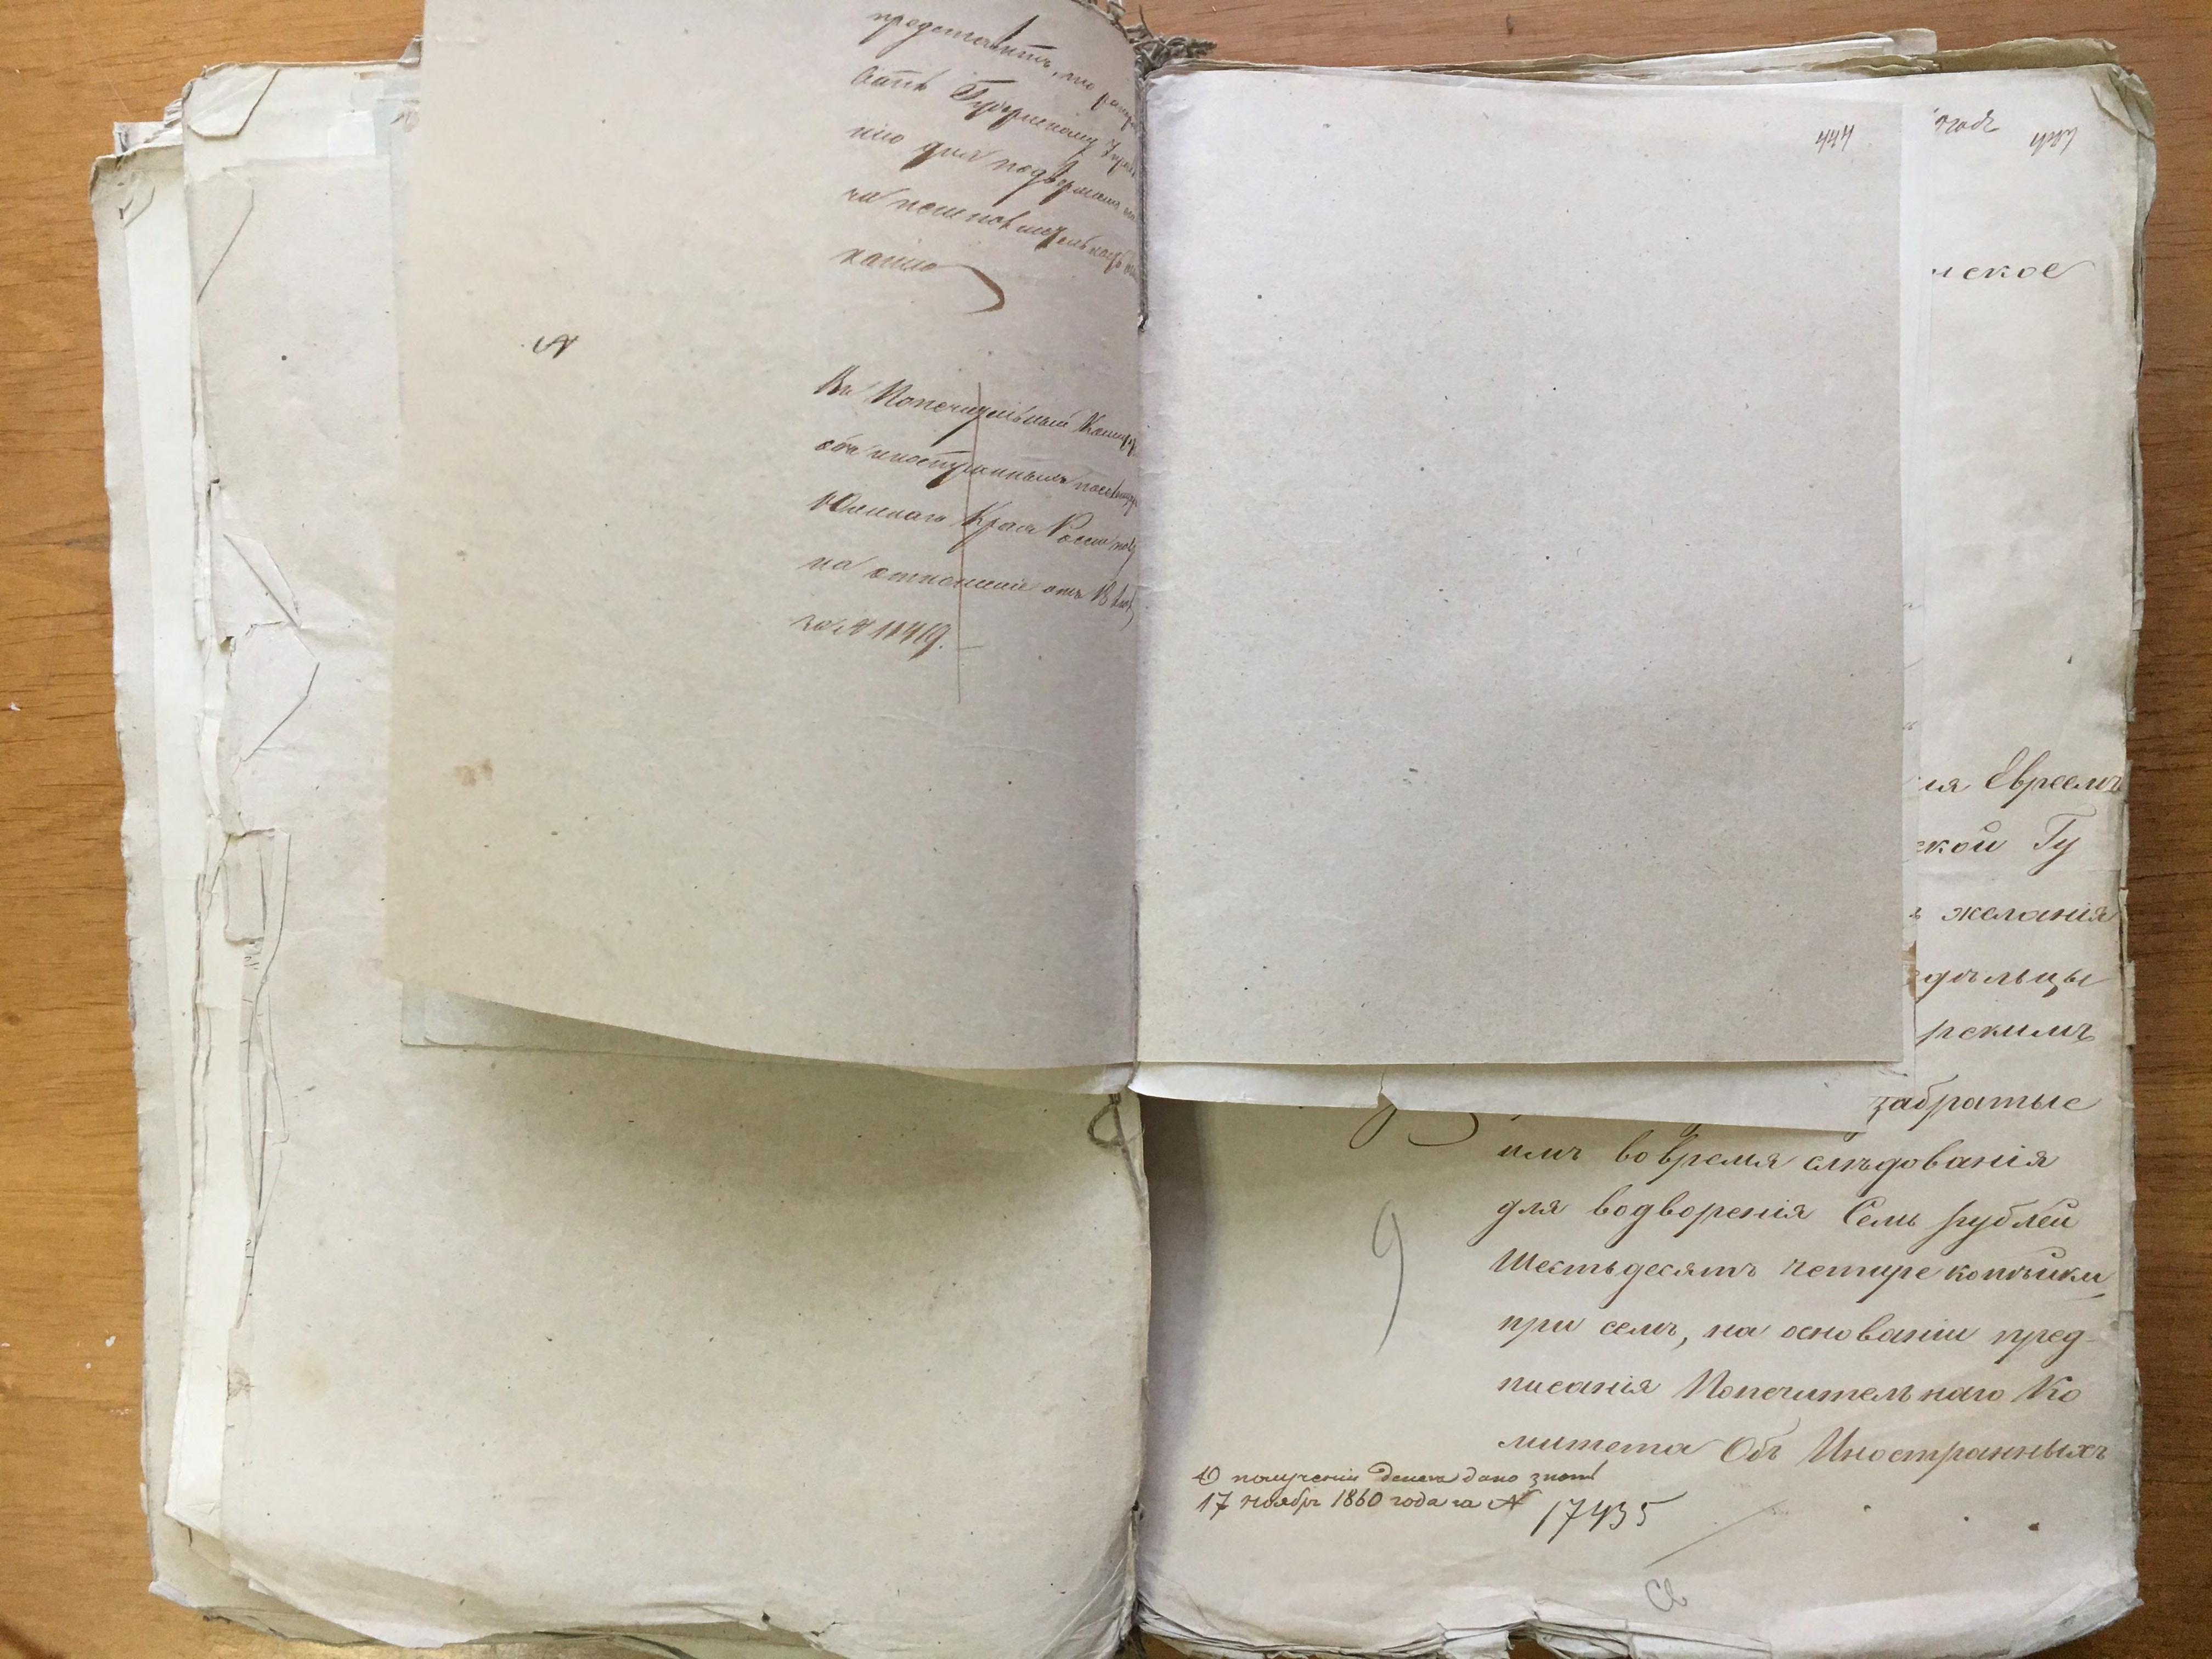 представить, что
Губернскому
нію для
на
каніи
№
Въ Попечительный Комит
объ иностранныхъ поселен
Южнаго Края Россіи
на отношеніе отъ 13
за № 11419.
447
года
ское
ія Евреемъ
ской Гу
ъ желанія
дѣльцы
рскимъ
забратые
имъ вовремя слѣдованія
для водворенія Семь рублей
Шестьдесятъ четыре копѣйки,
при семъ, на основаніи пред-
писанія Попечительнаго Ко
митета Объ Иностранныхъ
О полученіи денегъ дано знать
17 ноября 1860 года за № 17435